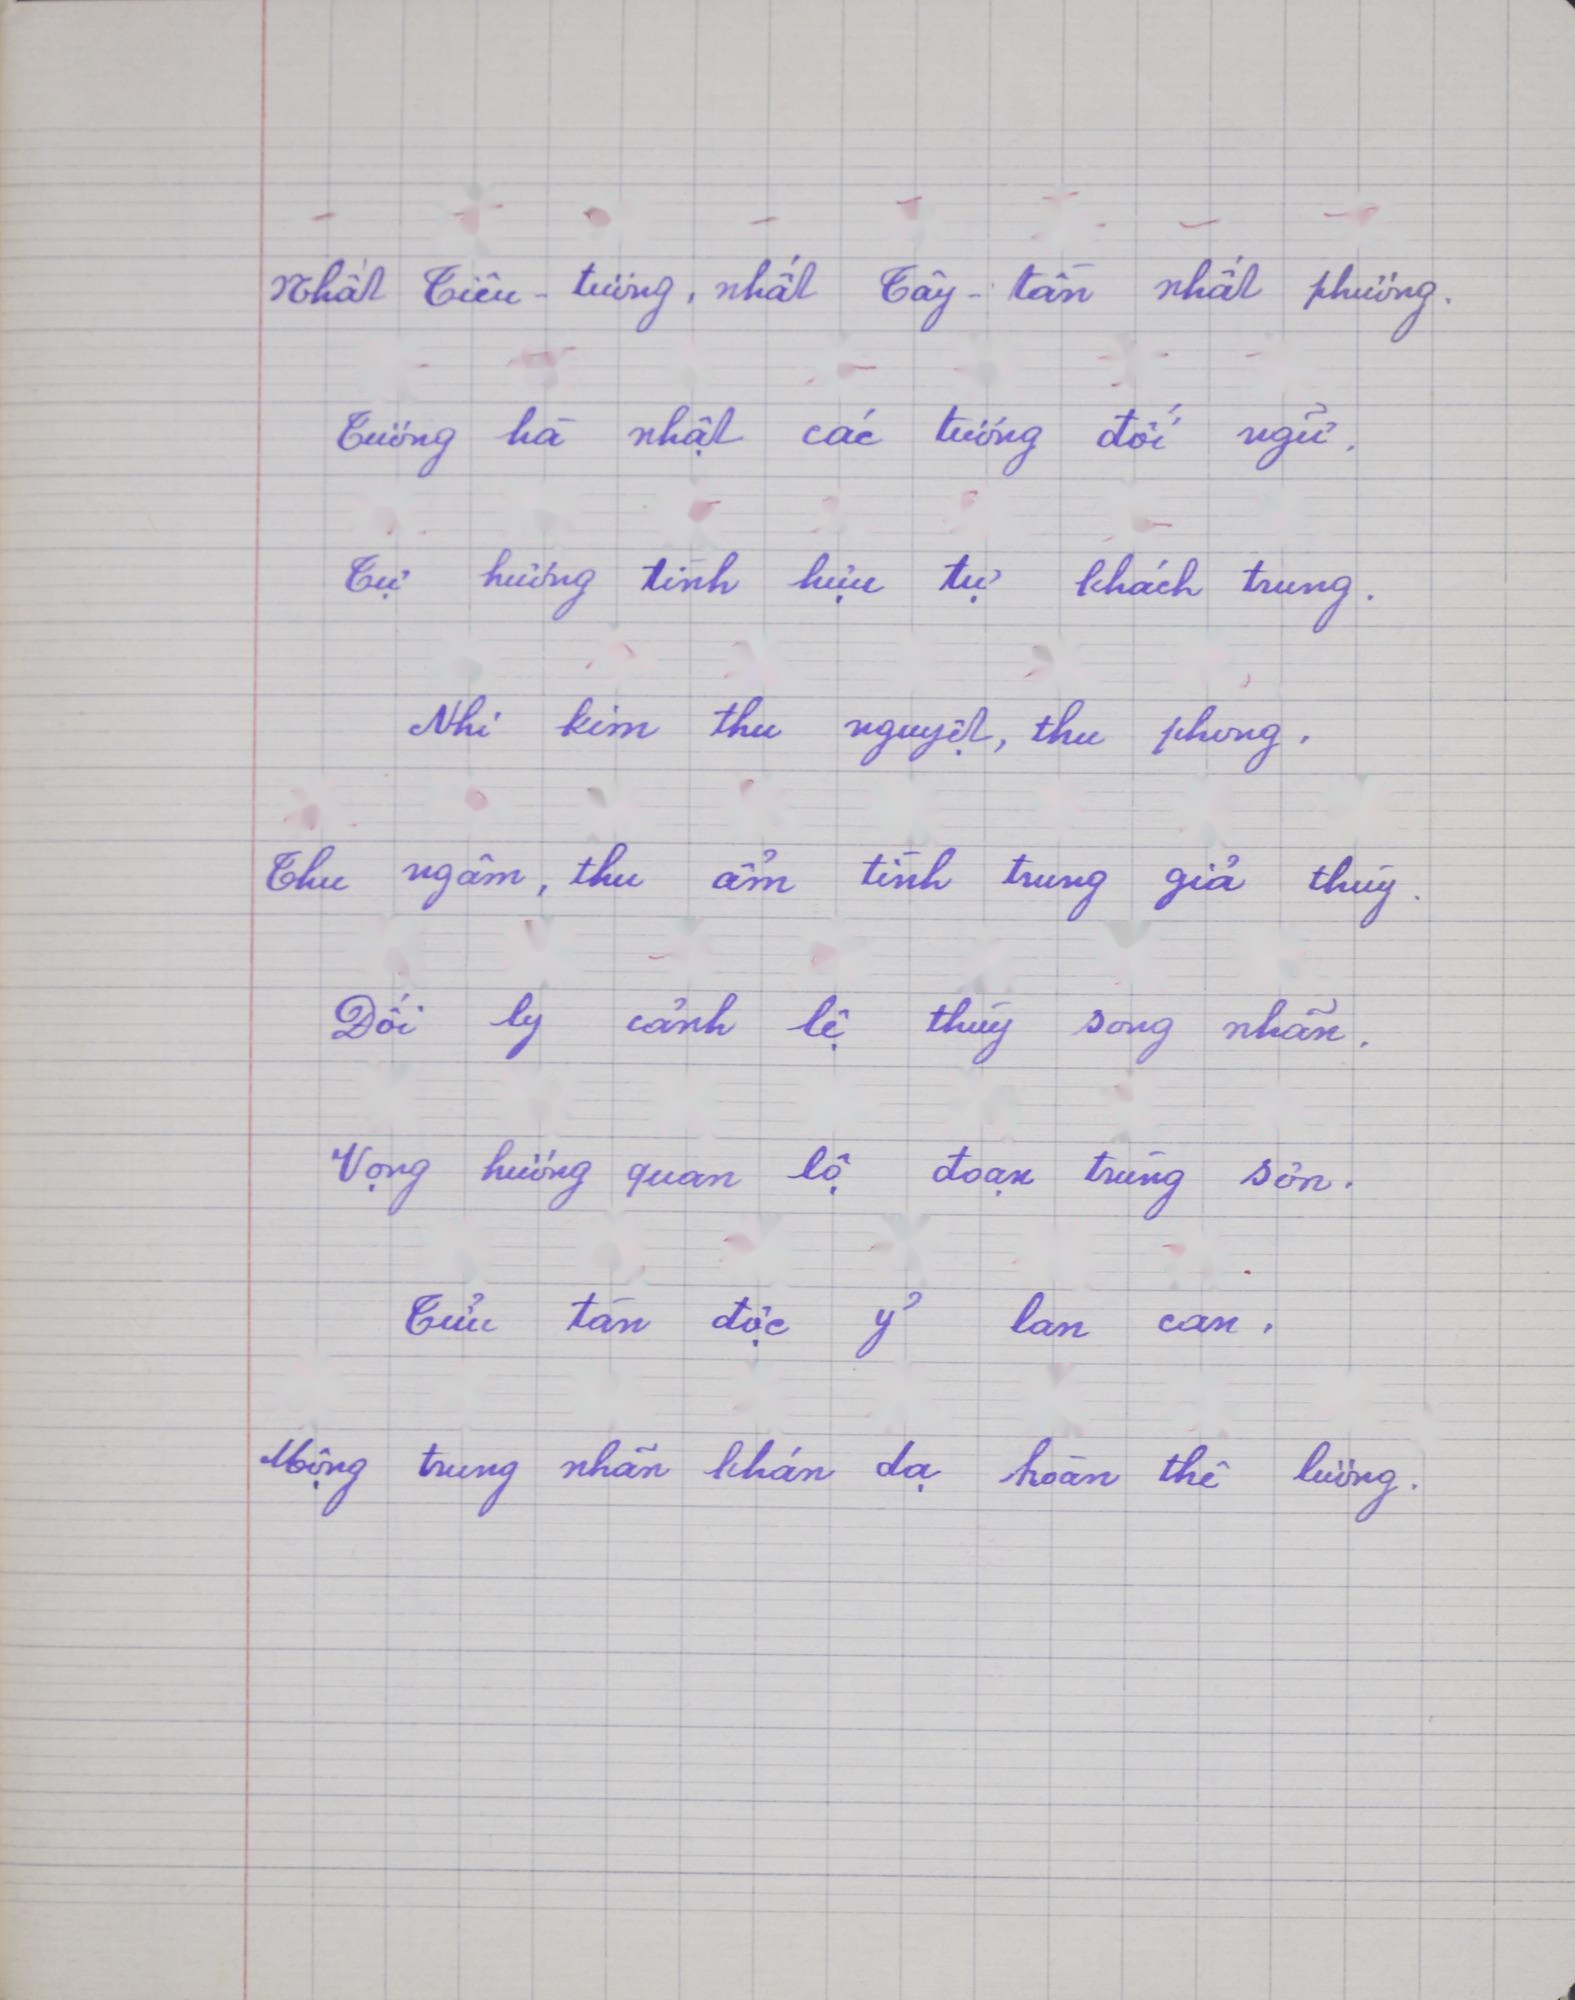 Nhất Tiêu-tương, nhất Tây-tần nhất phương.
Tương hà nhật các tương đối ngữ.
Tự hương tình hựu tự khách trung.
Nhi kim thu nguyệt, thu phong.
Thu ngâm, thu ẩm tình trung giả thùy.
Đối ly cảnh lệ thùy song nhãn.
Vọng hương quan lộ đoạn trùng sơn.
Tửu tàn độc ỷ lan can.
Mộng trung nhãn khán dạ hoàn thê lương.